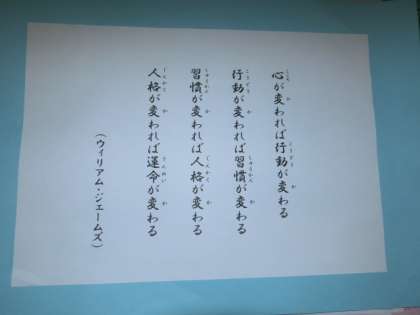 心が変われば行動が変わる
行動が変われば習慣が変わる
習慣が変われば人格が変わる
人格が変われば運命が変わる
（ウィリアム・ジェームズ）